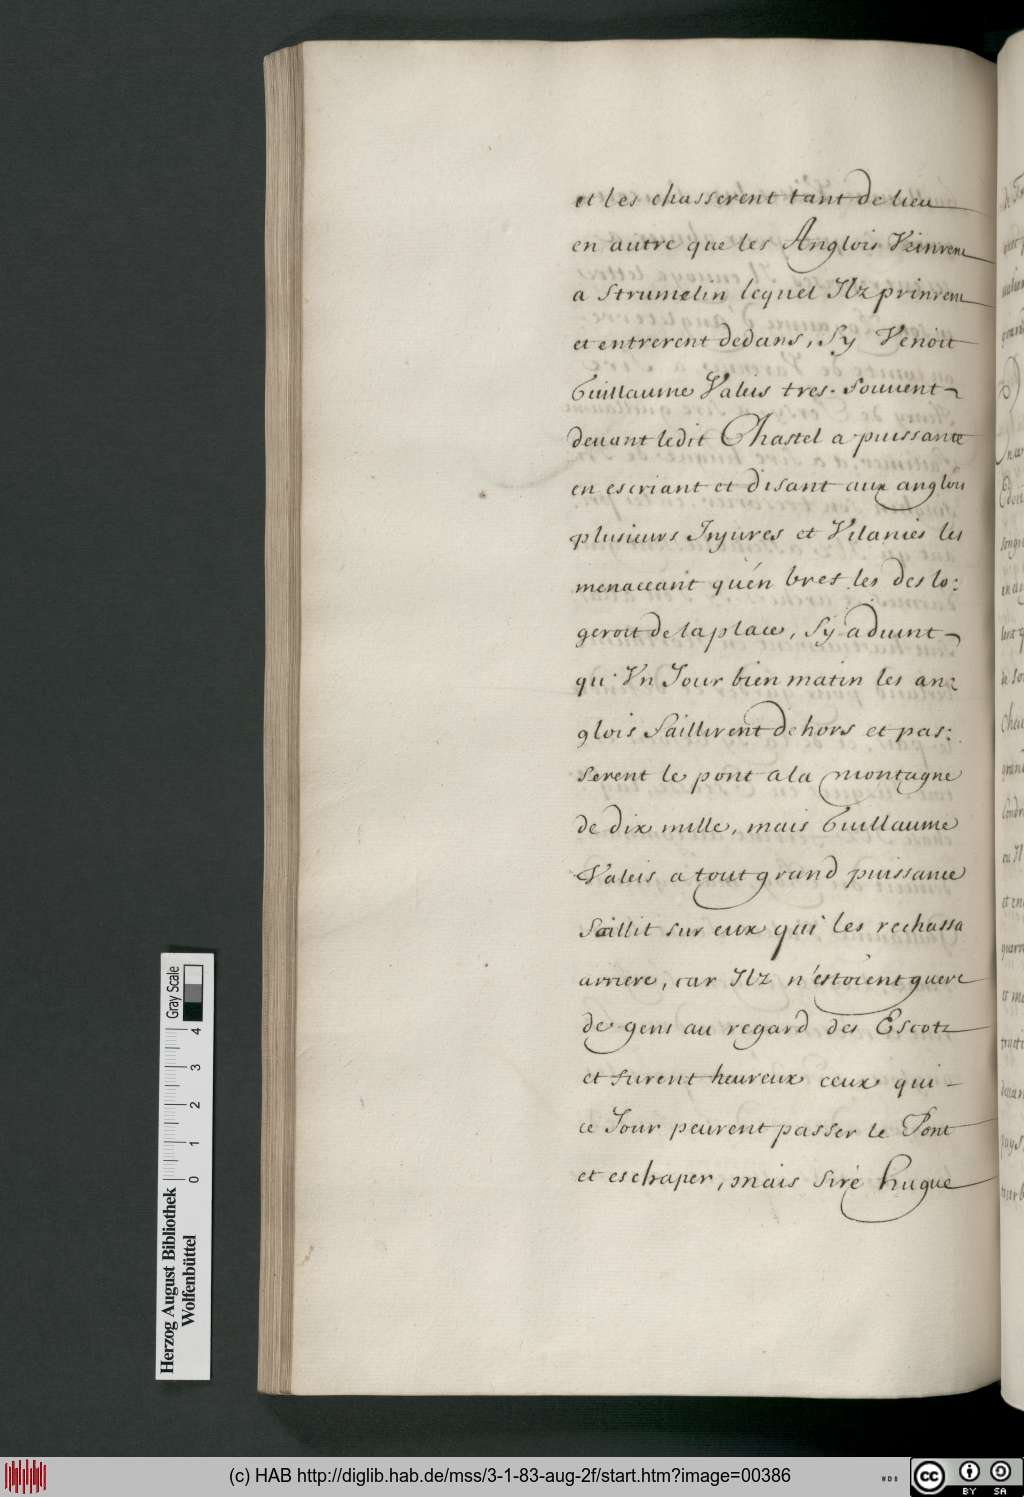 et les chasserent tant de lieu
en autre que les Anglois Veinrent
a Strumelin lequel Ilz prinrent
et entrerent dedans, Sy Venoit
Guillaume Valeis tres-souvent
deuant ledit Chastel a puissante
en escriant et disant aux anglois
plusieurs Injures et Vilanies les
menaceant qu'én bref les deslo:
geroit de la place, Sy aduint
qu'Vn Jour bien matin les an:
glois Saillirent dehors et pas:
serent le pont a la montagne
de dix mille, mais Guillaume
Valeis a tout grand puissance
Saillit sur eux qui les rechassa
arriere, car Ilz n'estoient guere
de gens au regard des Escotz
et furent heureux ceux qui -
ce Jour peurent passer le Pont
et eschaper, mais Siré hugue
Herzog August Bibliothek
Wolfenbüttel
0 1 2 3 4
Gray Scale
(c) HAB http://diglib.hab.de/mss/3-1-83-aug-2f/start.htm?image=00386
WDB
cc BY SA